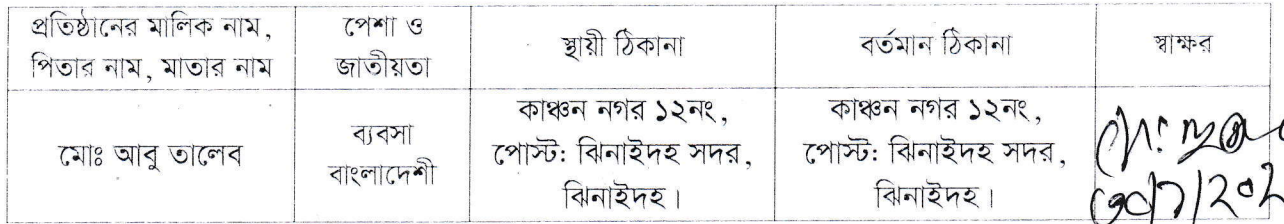 প্রতিষ্ঠানের মালিক নাম,
পিতার নাম, মাতার নাম
পেশা ও
জাতীয়তা
স্থায়ী ঠিকানা
বর্তমান ঠিকানা
স্বাক্ষর
মোঃ আবু তালেব
ব্যবসা
বাংলাদেশী
কাঞ্চন নগর ১২নং,
পোস্ট: ঝিনাইদহ সদর,
ঝিনাইদহ।
কাঞ্চন নগর ১২নং,
পোস্ট: ঝিনাইদহ সদর,
ঝিনাইদহ।